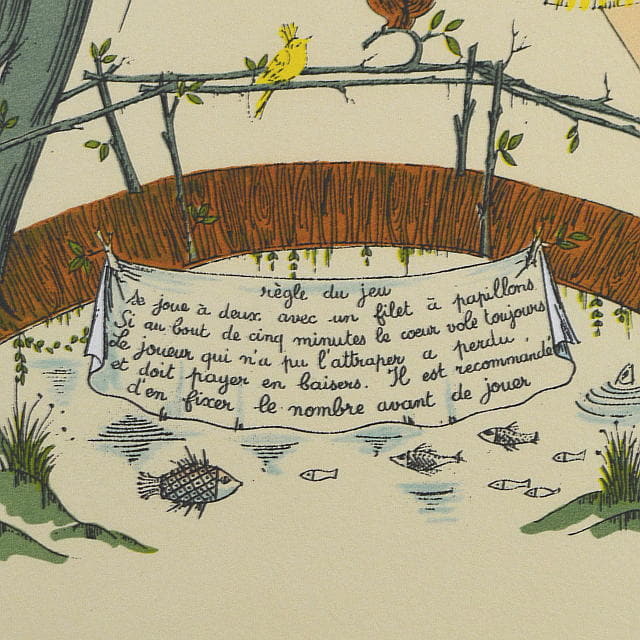 règle du jeu
Se joue à deux. avec un filet à papillons
Si au bout de cinq minutes le coeur vole toujours
Le joueur qui n'a pu l'attraper a perdu.
et doit payer en baisers. Il est recommandé
d'en fixer le nombre avant de jouer